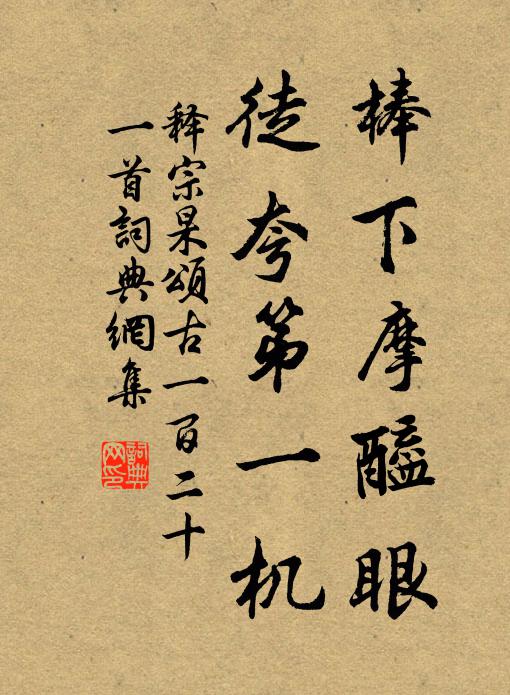 棒下摩醯眼
徒夸第一机
释宗杲頌古一百二十
一首詞典網集
詞典网印